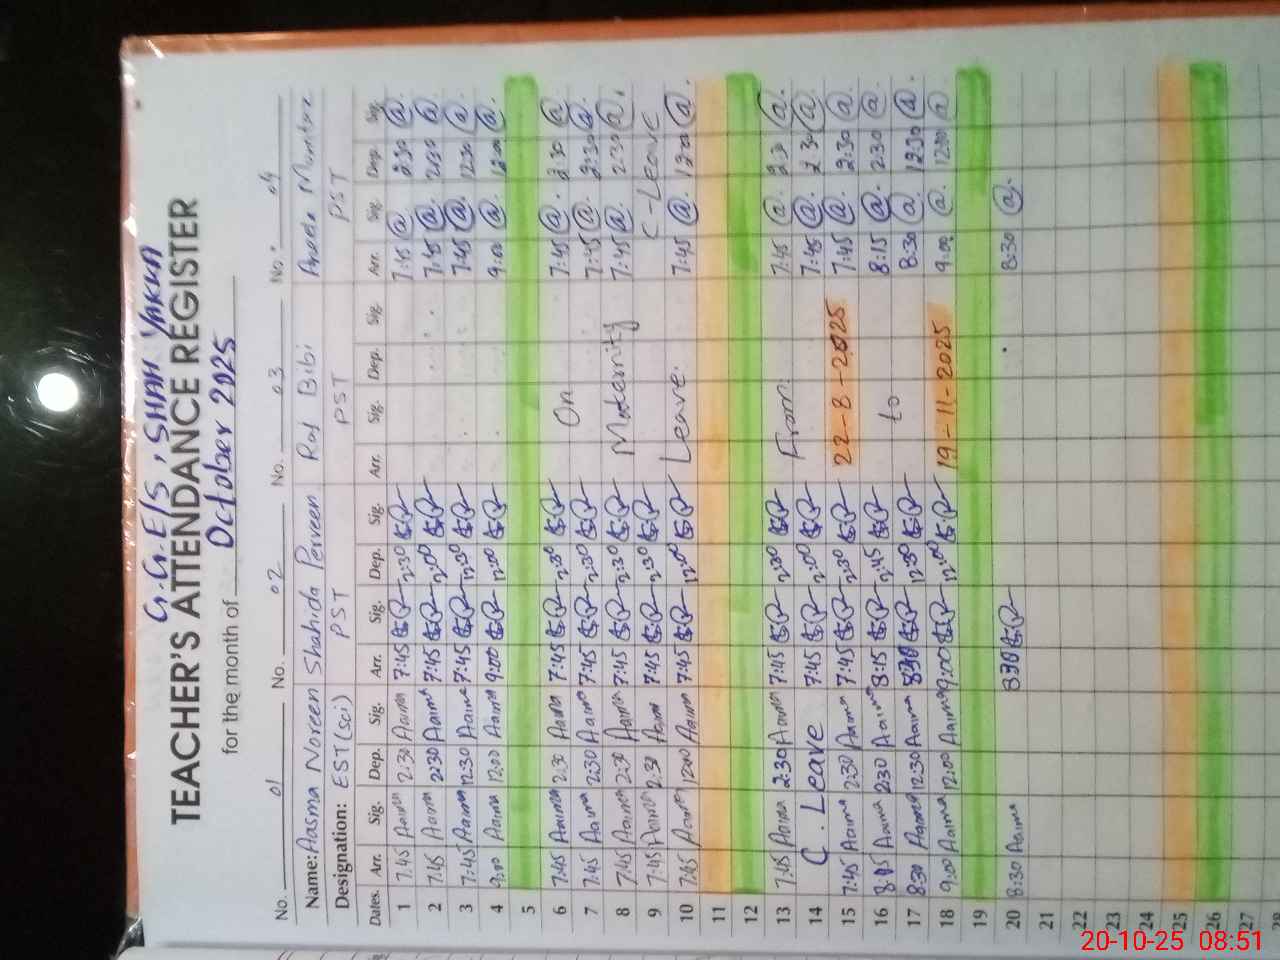 G.G.E/S, SHAH YAKKA
TEACHER'S ATTENDANCE REGISTER
for the month of October 2025
No. 01 No. 02 No. 03 No. 04
Name: Aasma Noreen Shahida Perveen Raf Bibi
Designation: EST (sci) PST PST PST
Dates. Arr. Sig. Dep. Sig. Arr. Sig. Dep. Sig. Arr. Sig. Dep. Sig. Arr. Sig. Dep. Sig.
1 7:45 Aaima 2:30 Aaima 7:45 2:30 7:45 @ 2:30 @
2 7:45 Aaima 2:30 Aaima 7:45 2:00 7:45 @ 2:00 @
3 7:45 Aaima 12:30 Aaima 7:45 12:30 7:45 @ 12:30 @
4 9:00 Aaima 12:00 Aaima 9:00 12:00 9:00 @ 12:00 @
5
6 7:45 Aaima 2:30 Aaima 7:45 2:30 On 7:45 @ 2:30 @
7 7:45 Aaima 2:30 Aaima 7:45 2:30 7:45 @ 2:30 @
8 7:45 Aaima 2:30 Aaima 7:45 2:30 Maternity 7:45 @ 2:30 @
9 7:45 Aaima 2:30 Aaima 7:45 2:30 C-Leave
10 7:45 Aaima 12:00 Aaima 7:45 12:00 Leave. 7:45 @ 12:00 @
11
12
13 7:45 Aaima 2:30 Aaima 7:45 2:30 From 7:45 @ 2:30 @
14 C. Leave 7:45 2:00 7:45 @ 2:30 @
15 7:45 Aaima 2:30 Aaima 7:45 2:30 22-8-2025 7:45 @ 2:30 @
16 8:15 Aaima 2:30 Aaima 8:15 2:45 to 8:15 @ 2:30 @
17 8:30 Aaima 12:30 Aaima 8:30 12:30 8:30 @ 12:30 @
18 9:00 Aaima 12:00 Aaima 9:00 12:00 19-11-2025 9:00 @ 12:00 @
19
20 8:30 Aaima 8:30 8:30 @
21
22
23
24
25
26
27
28
20-10-25 08:51